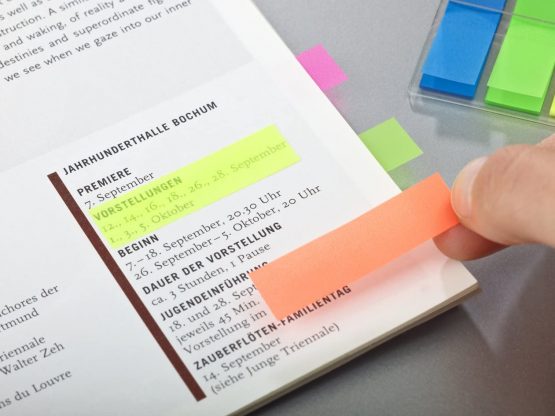 is well as
struction. A simil
and waking, of reality a
destinies and superordinate fig
we see when we gaze into our inner
JAHRHUNDERTHALLE BOCHUM
PREMIERE
7. September
VORSTELLUNGEN
12., 14., 16., 18., 26., 28. September
1., 3., 5. Oktober
BEGINN
7.–18. September, 20.30 Uhr
26. September–5. Oktober, 20 Uhr
DAUER DER VORSTELLUNG
ca. 3 Stunden, 1 Pause
JUGENDEINFÜHRUNG
18. und 28. Sep
jeweils 45 Min.
Vorstellung im
ZAUBERFLÖTEN-FAMILIENTAG
14. September
(siehe Junge Triennale)
chores der
rtmund
riennale
Walter Zeh
ns du Louvre